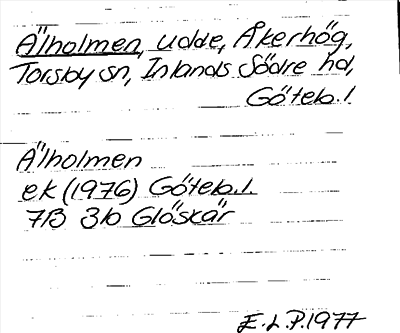 Älholmen, udde, Åkerhög,
Torsby sn, Inlands Södre hd,
Göteb. l
Älholmen
ek (1976) Göteb. l.
7B 3b Glöskär
E. L. P. 1977